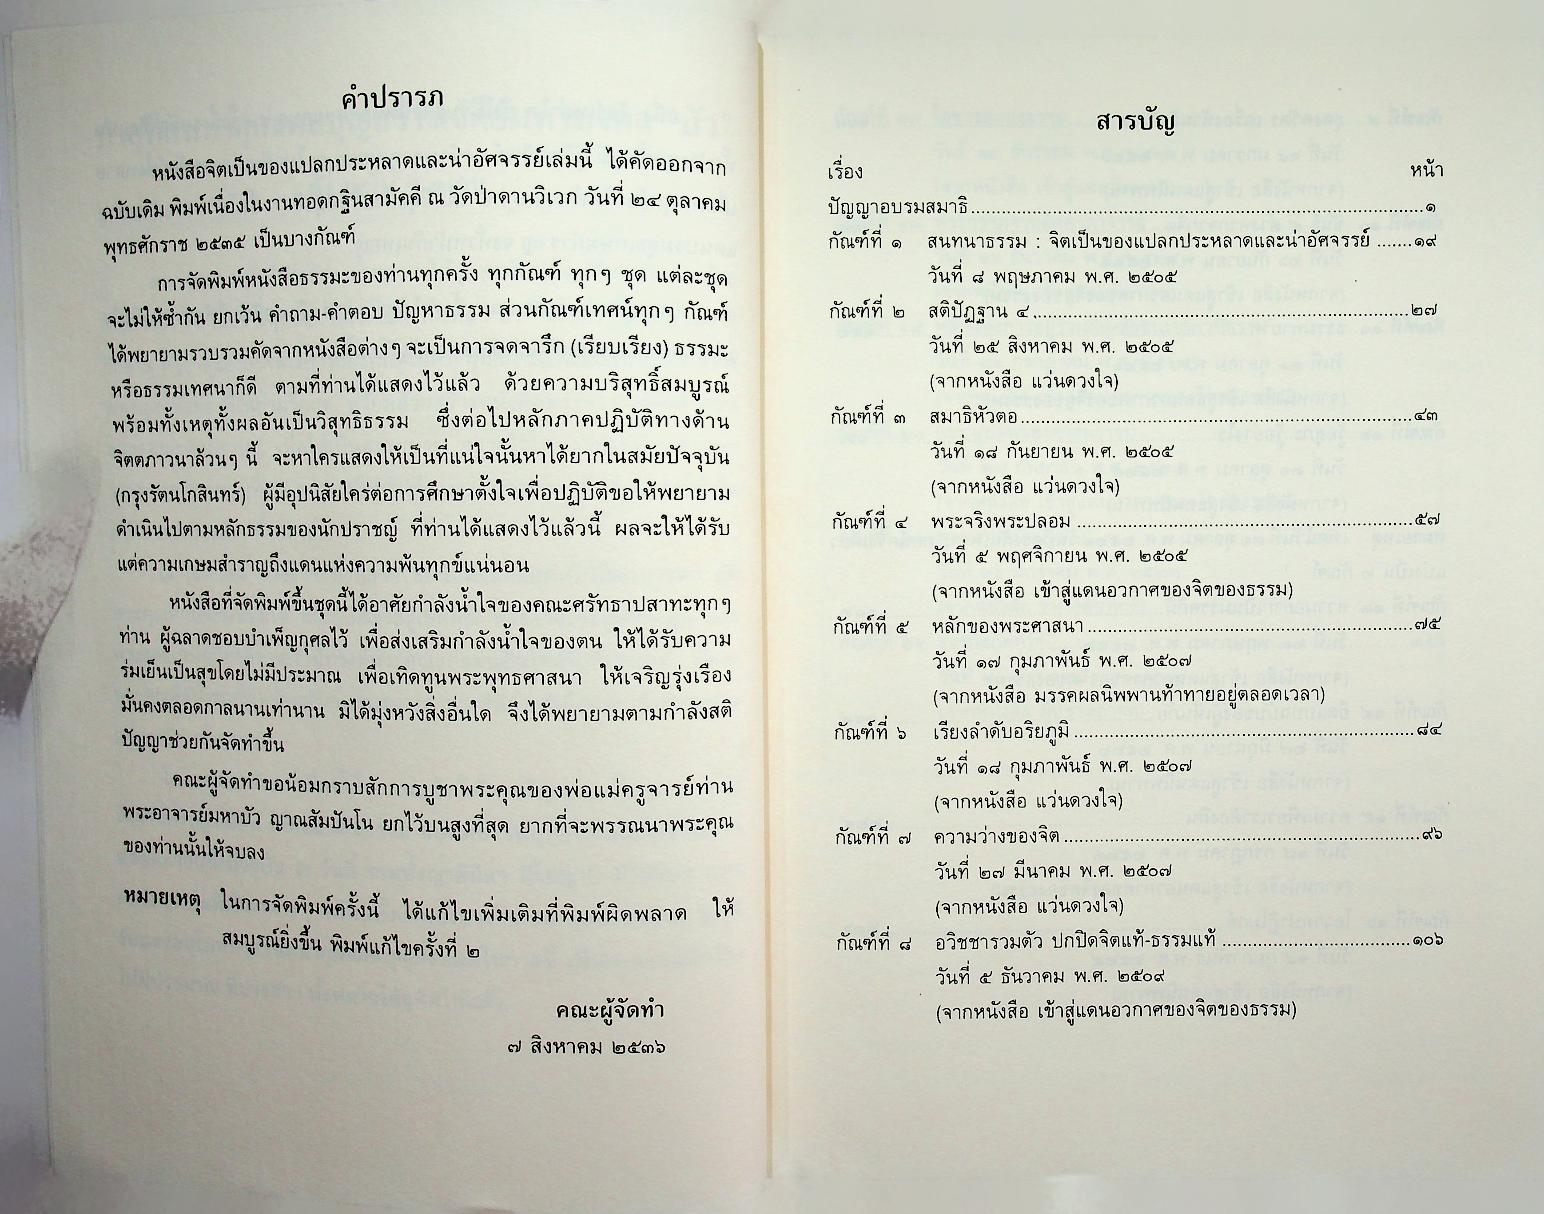 คำปรารภ
หนังสือจิตเป็นของแปลกประหลาดและน่าอัศจรรย์เล่มนี้ ได้คัดออกจาก
ฉบับเดิม พิมพ์เนื่องในงานทอดกฐินสามัคคี ณ วัดป่าดานวิเวก วันที่ ๒๔ ตุลาคม
พุทธศักราช ๒๕๓๕ เป็นบางกัณฑ์
การจัดพิมพ์หนังสือธรรมะของท่านทุกครั้ง ทุกกัณฑ์ ทุกๆ ชุด แต่ละชุด
จะไม่ให้ซ้ำกัน ยกเว้น คำถาม-คำตอบ ปัญหาธรรม ส่วนกัณฑ์เทศน์ทุกๆ กัณฑ์
ได้พยายามรวบรวมคัดจากหนังสือต่างๆ จะเป็นการจดจารึก (เรียบเรียง) ธรรมะ
หรือธรรมเทศนาก็ดี ตามที่ท่านได้แสดงไว้แล้ว ด้วยความบริสุทธิ์สมบูรณ์
พร้อมทั้งเหตุทั้งผลอันเป็นวิสุทธิธรรม ซึ่งต่อไปหลักภาคปฏิบัติทางด้าน
จิตตภาวนาล้วนๆ นี้ จะหาใครแสดงให้เป็นที่แน่ใจนั้นหาได้ยากในสมัยปัจจุบัน
(กรุงรัตนโกสินทร์) ผู้มีอุปนิสัยใคร่ต่อการศึกษาตั้งใจเพื่อปฏิบัติขอให้พยายาม
ดำเนินไปตามหลักธรรมของนักปราชญ์ ที่ท่านได้แสดงไว้แล้วนี้ ผลจะให้ได้รับ
แต่ความเกษมสำราญถึงแดนแห่งความพ้นทุกข์แน่นอน
หนังสือที่จัดพิมพ์ขึ้นชุดนี้ได้อาศัยกำลังน้ำใจของคณะศรัทธาปสาทะทุกๆ
ท่าน ผู้ฉลาดชอบบำเพ็ญกุศลไว้ เพื่อส่งเสริมกำลังน้ำใจของตน ให้ได้รับความ
ร่มเย็นเป็นสุขโดยไม่มีประมาณ เพื่อเทิดทูนพระพุทธศาสนา ให้เจริญรุ่งเรือง
มั่นคงตลอดกาลนานเท่านาน มิได้มุ่งหวังสิ่งอื่นใด จึงได้พยายามตามกำลังสติ
ปัญญาช่วยกันจัดทำขึ้น
คณะผู้จัดทำขอน้อมกราบสักการบูชาพระคุณของพ่อแม่ครูจารย์ท่าน
พระอาจารย์มหาบัว ญาณสัมปันโน ยกไว้บนสูงที่สุด ยากที่จะพรรณนาพระคุณ
ของท่านนั้นให้จบลง
หมายเหตุ ในการจัดพิมพ์ครั้งนี้ ได้แก้ไขเพิ่มเติมที่พิมพ์ผิดพลาด ให้
สมบูรณ์ยิ่งขึ้น พิมพ์แก้ไขครั้งที่ ๒
คณะผู้จัดทำ
๗ สิงหาคม ๒๕๓๖
สารบัญ
เรื่อง หน้า
ปัญญาอบรมสมาธิ ........ ๑
กัณฑ์ที่ ๑ สนทนาธรรม : จิตเป็นของแปลกประหลาดและน่าอัศจรรย์ .......๑๙
วันที่ ๘ พฤษภาคม พ.ศ. ๒๕๐๕
กัณฑ์ที่ ๒ สติปัฏฐาน ๔ ........ ๒๗
วันที่ ๒๕ สิงหาคม พ.ศ. ๒๕๐๕
(จากหนังสือ แว่นดวงใจ)
กัณฑ์ที่ ๓ สมาธิหัวตอ ........ ๔๓
วันที่ ๑๘ กันยายน พ.ศ. ๒๕๐๕
(จากหนังสือ แว่นดวงใจ)
กัณฑ์ที่ ๔ พระจริงพระปลอม ........ ๕๗
วันที่ ๕ พฤศจิกายน พ.ศ. ๒๕๐๕
(จากหนังสือ เข้าสู่แดนอวกาศของจิตของธรรม)
กัณฑ์ที่ ๕ หลักของพระศาสนา ........ ๗๕
วันที่ ๑๗ กุมภาพันธ์ พ.ศ. ๒๕๐๗
(จากหนังสือ มรรคผลนิพพานท้าทายอยู่ตลอดเวลา)
กัณฑ์ที่ ๖ เรียงลำดับอริยภูมิ ........ ๘๔
วันที่ ๑๘ กุมภาพันธ์ พ.ศ. ๒๕๐๗
(จากหนังสือ แว่นดวงใจ)
กัณฑ์ที่ ๗ ความว่างของจิต ........ ๙๖
วันที่ ๒๗ มีนาคม พ.ศ. ๒๕๐๗
(จากหนังสือ แว่นดวงใจ)
กัณฑ์ที่ ๘ อวิชชารวมตัว ปกปิดจิตแท้-ธรรมแท้ ........ ๑๐๖
วันที่ ๕ ธันวาคม พ.ศ. ๒๕๐๙
(จากหนังสือ เข้าสู่แดนอวกาศของจิตของธรรม)